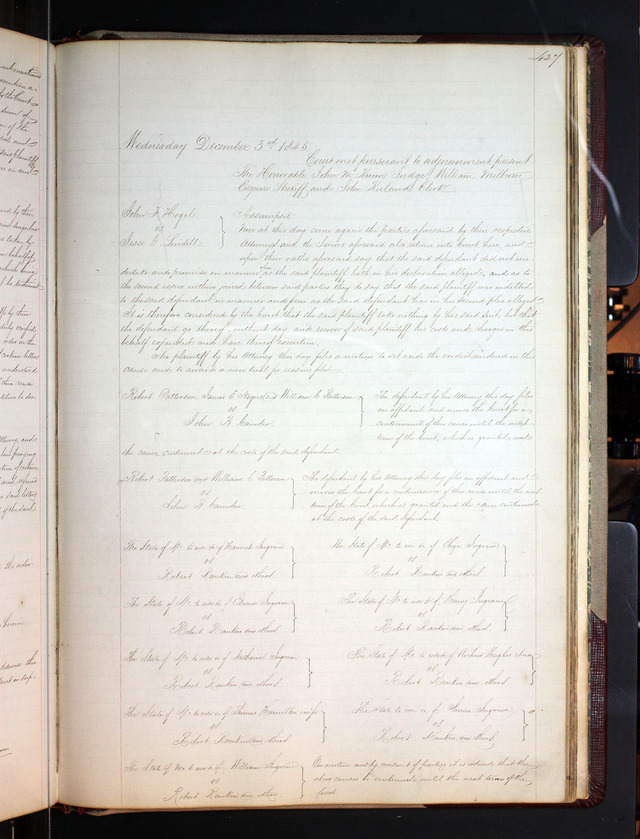 427
Wednesday December 3rd 1845
Court met pursuant to adjournment present
The Honorable John M. Krum Judge, William Milburn
Esquire Sheriff and John Ruland Clerk
John F. Hogal
vs
Jesse G. Lindell
Assumpsit
Now at this day come again the parties aforesaid by their respective
Attorneys and the Jurors aforesaid also return into Court here, and
upon their oaths aforesaid say that the said defendant did not un-
dertake and promise in manner as the said plaintiff hath in his declaration alleged, and as to
the second issue within joined between said parties they do say that the said plaintiff was indebted
to the said defendant in manner and form as the said defendant has in his second plea alleged
It is therefore considered by the Court that the said plaintiff take nothing by his said suit, but that
the defendant go thereof without day and recover of said plaintiff his costs and charges in this
behalf expended and have thereof execution.
The plaintiff by his Attorney this day files a motion to set aside the verdict rendered in this
cause and to award a new trial for reasons filed
Robert Patterson, James and William C. Patterson
vs
John B. Camden
The defendant by his Attorney this day files
an affidavit and moves the Court for a
continuance of this cause until the next
term of the Court, which is granted and
the cause continued at the costs of the said defendant.
Robert Patterson and William C. Patterson
vs
John B. Camden
The defendant by his Attorney this day files an affidavit and
moves the Court for a continuance of this cause until the next
term of the Court which is granted and the cause continued
at the costs of the said defendant.
The State of Mo to use of Hannah Ingram
vs
Robert Rankin and others
The State of Mo to use of Ingram
vs
Robert Rankin and others
The State of Mo to use of Ingram
vs
Robert Rankin and others
The State of Mo to use of Ingram
vs
Robert Rankin and others
The State of Mo to use of Nathaniel Ingram
vs
Robert Rankin and others
The State of Mo to use of
vs
Robert Rankin and others
The State of Mo to use of Hamilton
vs
Robert Rankin and others
The State to use of Ingram
vs
Robert Rankin and others
The State of Mo to use of William Ingram
vs
Robert Rankin and others
On motion and by consent of parties it is ordered that the
above causes be continued until the next term of the
Court